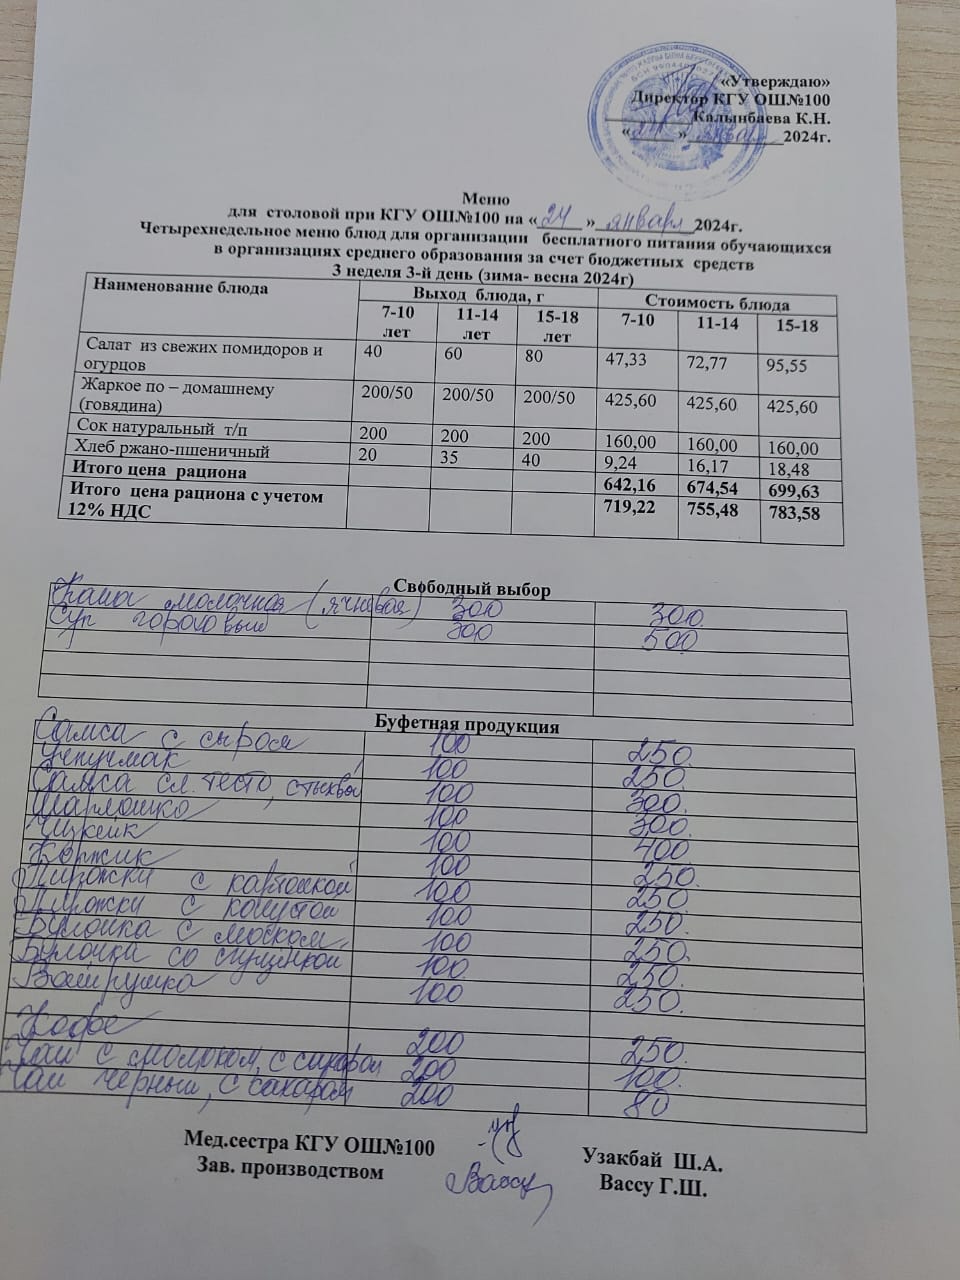 «Утверждаю»
Директор КГУ ОШ№100
Калынбаева К.Н.
«24» января 2024г.
Меню
для столовой при КГУ ОШ.№100 на «24» января 2024г.
Четырехнедельное меню блюд для организации бесплатного питания обучающихся
в организациях среднего образования за счет бюджетных средств
3 неделя 3-й день (зима- весна 2024г)
Наименование блюда Выход блюда, г Стоимость блюда
7-10 лет 11-14 лет 15-18 лет 7-10 11-14 15-18
Салат из свежих помидоров и огурцов 40 60 80 47,33 72,77 95,55
Жаркое по – домашнему (говядина) 200/50 200/50 200/50 425,60 425,60 425,60
Сок натуральный т/п 200 200 200 160,00 160,00 160,00
Хлеб ржано-пшеничный 20 35 40 9,24 16,17 18,48
Итого цена рациона 642,16 674,54 699,63
Итого цена рациона с учетом 12% НДС 719,22 755,48 783,58
Свободный выбор
Каша молочная (ячневая) 300 300.
Суп гороховый 300 500
Буфетная продукция
Самса с сыром 100 250.
Учпучмак 100 250.
Самса сл. тесто, с тыквой 100 300.
Шарлошка 100 300.
Чизкейк 100 400
Коржик 100 250.
Пирожки с картошкой 100 250
Пирожки с капустой 100 250.
Булочка с маком 100 250.
Булочка со сгущенкой 100 250.
Ватрушка 100 250.
Кофе 200 250.
Чай с молоком, с сахаром 200 100.
Чай чёрный, с сахаром 200 80
Мед.сестра КГУ ОШ№100 Узакбай Ш.А.
Зав. производством Вассу Г.Ш.